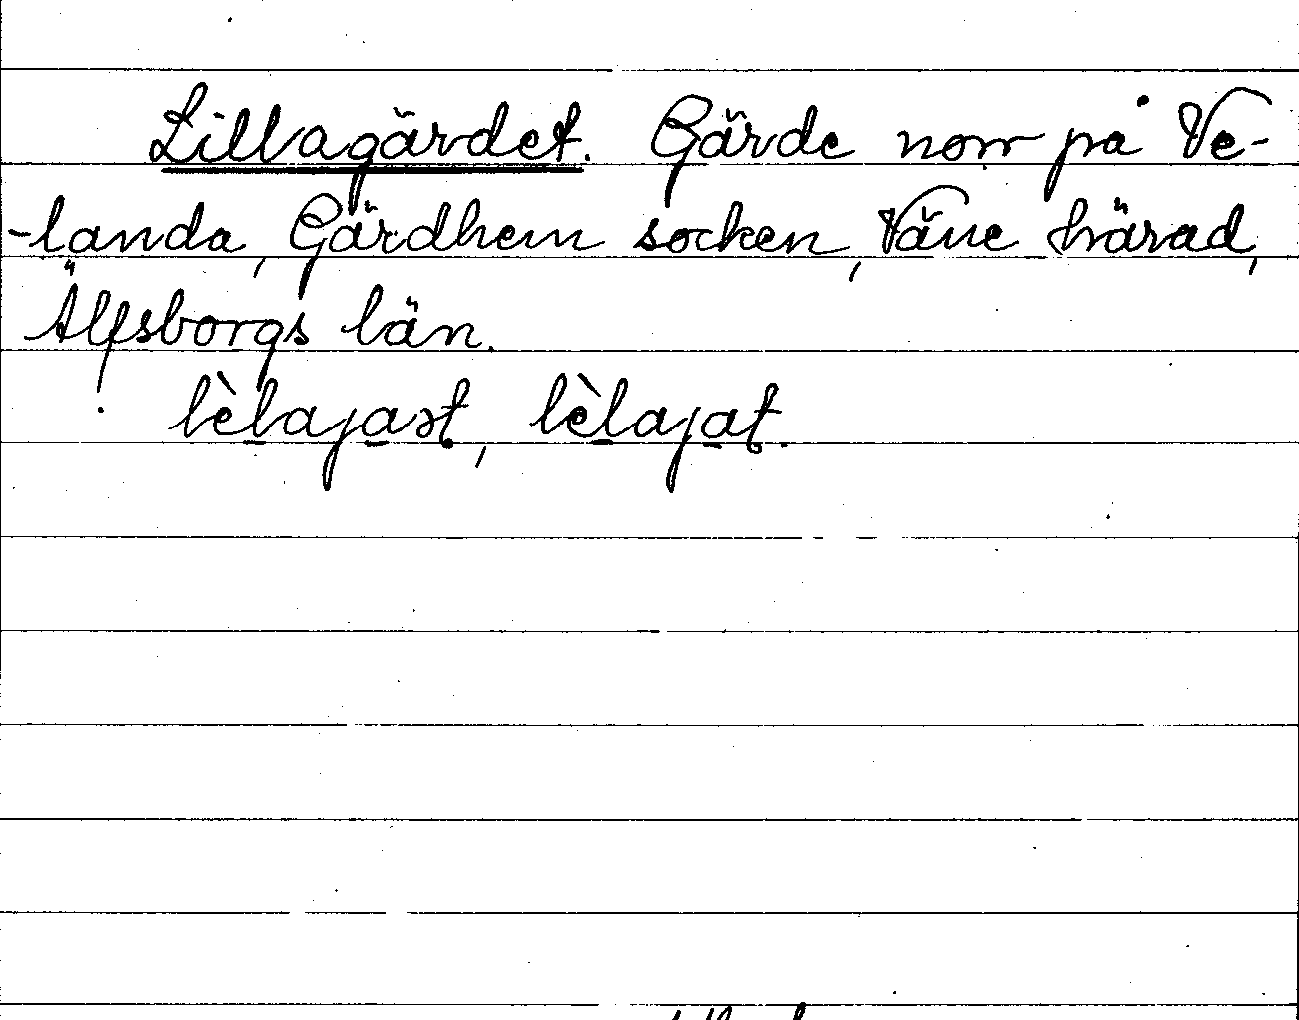 Lillagärdet. Gärde norr på Ve-
-landa, Gärdhem socken, Väne härad,
Älfsborgs län.
lèlajast, lèlajat.